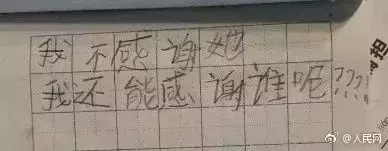 我不感谢她
我还能感谢谁呢???!
@人民网